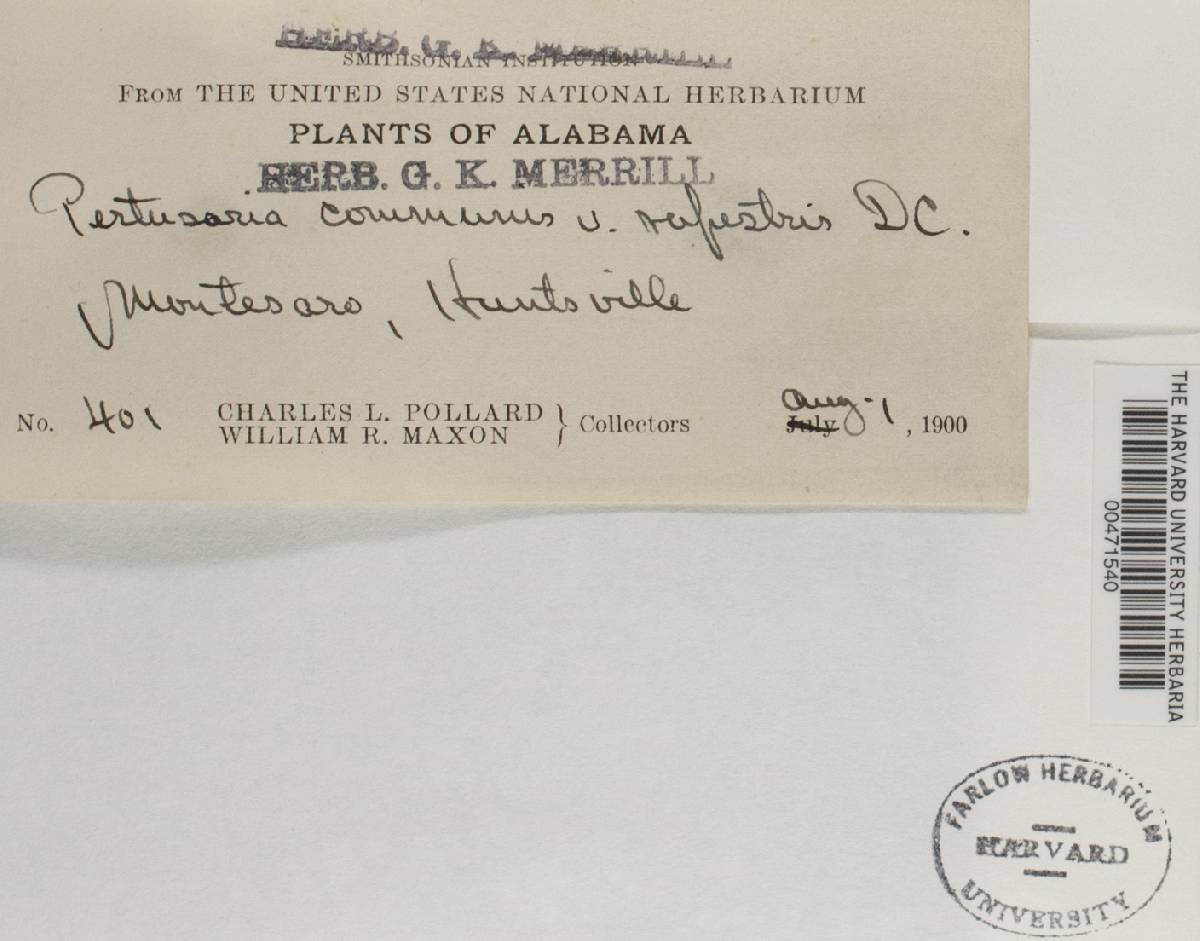 HERB. G. K. MERRILL
SMITHSONIAN INSTITUTION
FROM THE UNITED STATES NATIONAL HERBARIUM
PLANTS OF ALABAMA
HERB. G. K. MERRILL
Pertusaria communis v. rupestris DC.
Montesaro, Huntsville
No. 401 CHARLES L. POLLARD
WILLIAM R. MAXON } Collectors
July Aug. 1, 1900
THE HARVARD UNIVERSITY HERBARIA
00471540
FARLOW HERBARIUM
HARVARD
UNIVERSITY